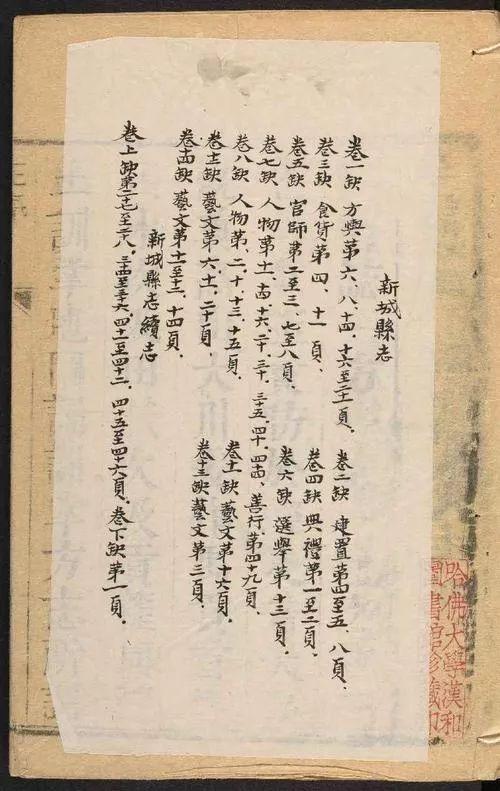 新城縣志
卷一缺 方輿第六、八十四、十六至二十一頁、
卷二缺 建置第四至五、八頁、
卷三缺 食貨第四、十一頁、
卷四缺 典禮第一至二頁、
卷五缺 官師第二至三、七至八頁、
卷六缺 選舉第十三頁。
卷七缺 人物第十一、十四、十六、二十、三十、三十五、四十、四十四、善行第四十九頁、
卷八缺 人物第二、十、十三、十五頁、
卷十一缺 藝文第十六頁、
卷十二缺 藝文第六、十一、二十頁、
卷十三缺藝文第三頁、
卷十四缺 藝文第十一至十三、十四頁、
新城縣志續志
卷上缺第二十七至二十八、三十四至三十六、四十一至四十二、四十五至四十六頁。卷下缺第一頁。
哈佛大學漢和
圖書館珍藏印